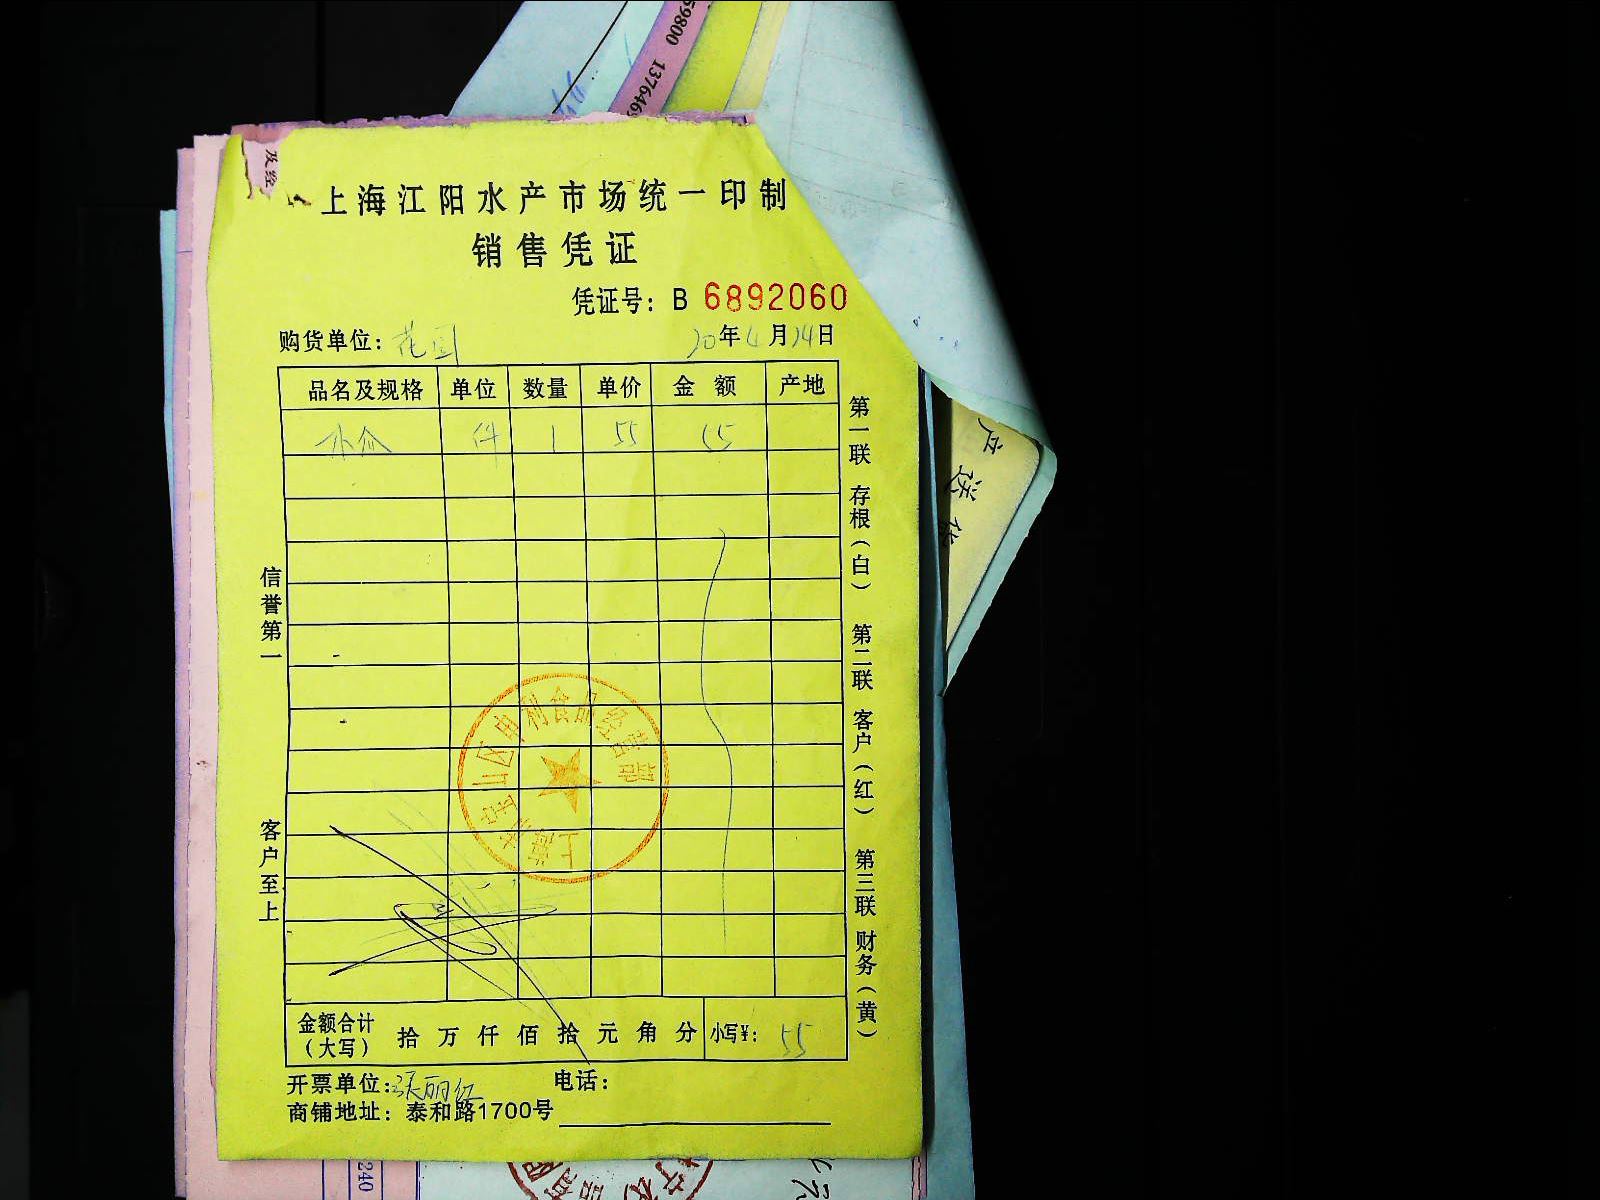 59800 137646
及经
上海江阳水产市场统一印制
销售凭证
凭证号：B 6892060
购货单位：花园 20年4月24日
品名及规格 单位 数量 单价 金 额 产地
件 1 55 55
第一联 存根（白） 第二联 客户（红） 第三联 财务（黄）
信誉第一 客户至上
上海市宝山区申利食品经营部
金额合计（大写） 拾 万 仟 佰 拾 元 角 分 小写¥：55
开票单位：张丽红 电话：
商铺地址：泰和路1700号
户送货
240